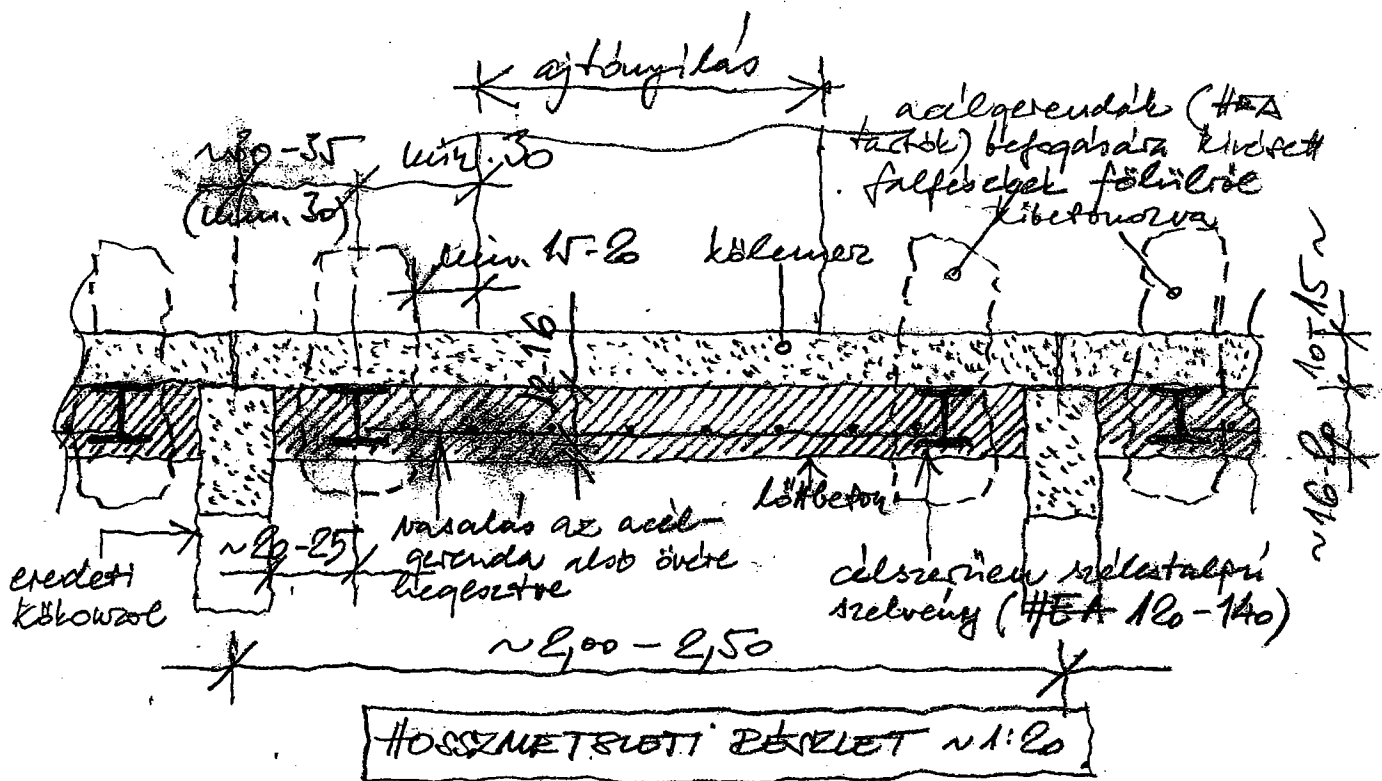 ajtónyílás
acélgerendák (HEA
tartók) befogására kivésett
falfészkek fölülről
kibetonozva
~30-35
(min. 30)
min. 30
min. 15-20
kőlemez
12-16
10-15~
~16-20
eredeti
kőkonzol
~20-25
vasalás az acél-
gerenda alsó övére
hegesztve
lőttbeton
célszerűen szélestalpú
szelvény (HEA 120-140)
~2,00-2,50
HOSSZMETSZETI RÉSZLET ~1:20